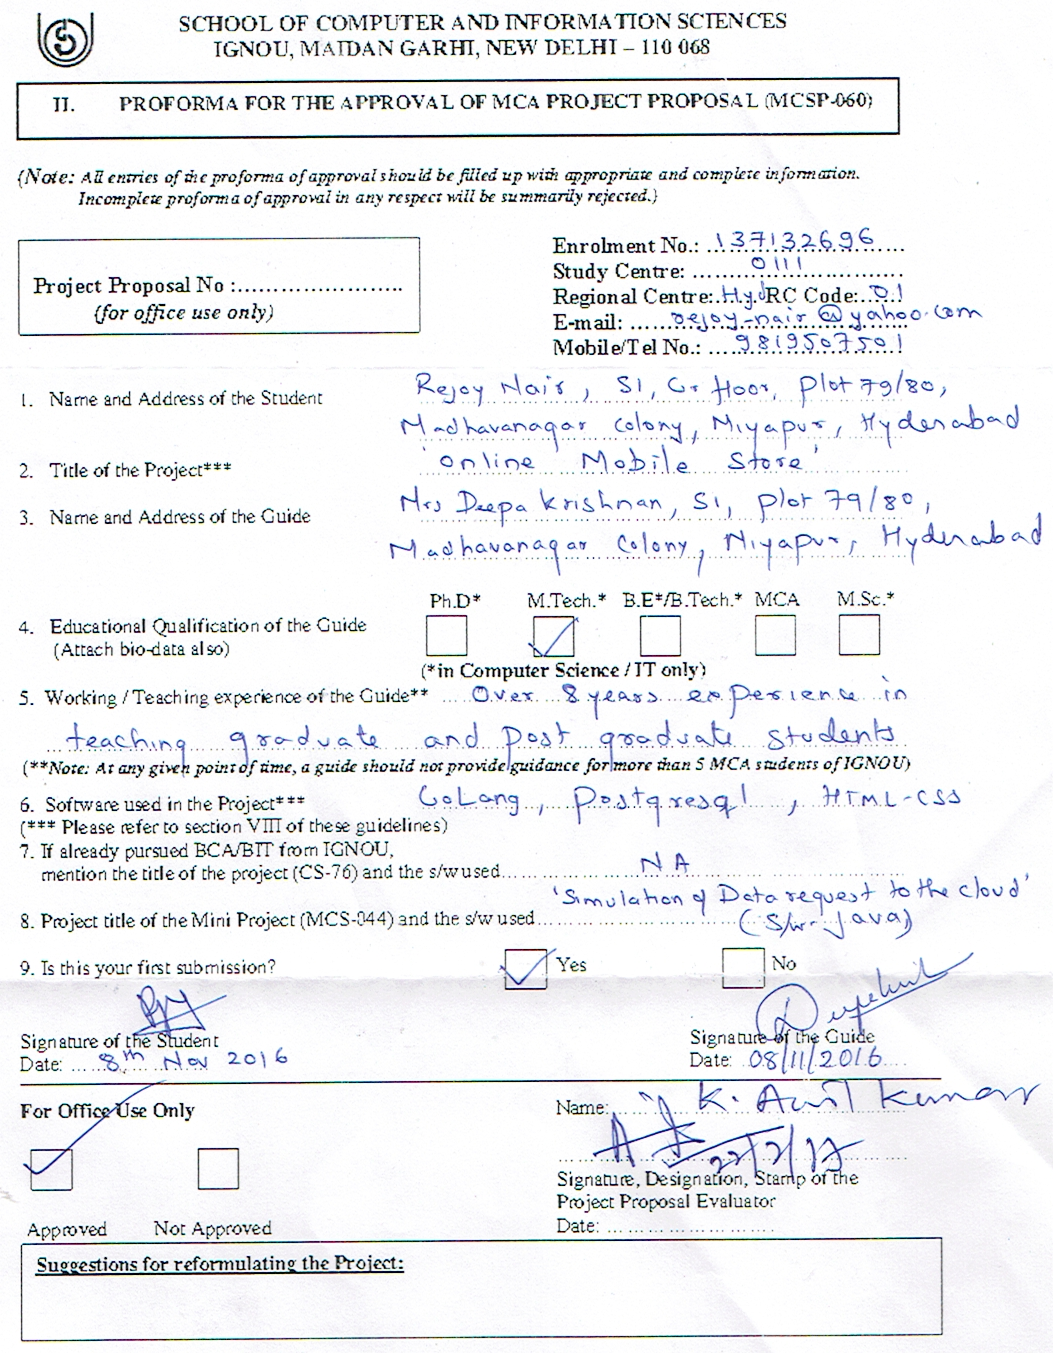 SCHOOL OF COMPUTER AND INFORMATION SCIENCES
IGNOU, MAIDAN GARHI, NEW DELHI – 110 068
II. PROFORMA FOR THE APPROVAL OF MCA PROJECT PROPOSAL (MCSP-060)
(Note: All entries of the proforma of approval should be filled up with appropriate and complete information.
Incomplete proforma of approval in any respect will be summarily rejected.)
Enrolment No.: 137132696
Study Centre: 0111
Project Proposal No :......................
Regional Centre: Hyd RC Code: 01
(for office use only)
E-mail: rejoy-nair@yahoo.com
Mobile/Tel No.: 9819507501
1. Name and Address of the Student Rejoy Nair, S1, Gr floor, Plot 79/80,
Madhavanagar Colony, Miyapur, Hyderabad
2. Title of the Project*** 'Online Mobile Store'
3. Name and Address of the Guide Mrs Deepa Krishnan, S1, Plot 79/80,
Madhavanagar Colony, Miyapur, Hyderabad
Ph.D* M.Tech.* B.E*/B.Tech.* MCA M.Sc.*
4. Educational Qualification of the Guide
(Attach bio-data also)
(*in Computer Science / IT only)
5. Working / Teaching experience of the Guide** Over 8 years experience in
teaching graduate and post graduate students
(**Note: At any given point of time, a guide should not provide guidance for more than 5 MCA students of IGNOU)
6. Software used in the Project*** GoLang, Postgresql, HTML-CSS
(*** Please refer to section VIII of these guidelines)
7. If already pursued BCA/BIT from IGNOU,
mention the title of the project (CS-76) and the s/w used NA
'Simulation of Data request to the cloud'
8. Project title of the Mini Project (MCS-044) and the s/w used (S/w- Java)
9. Is this your first submission? Yes No
Signature of the Student Signature of the Guide
Date: 8th Nov 2016 Date: 08/11/2016
For Office Use Only Name: K. Anil Kumar
22/2/17
Signature, Designation, Stamp of the
Project Proposal Evaluator
Approved Not Approved Date: ........................
Suggestions for reformulating the Project: